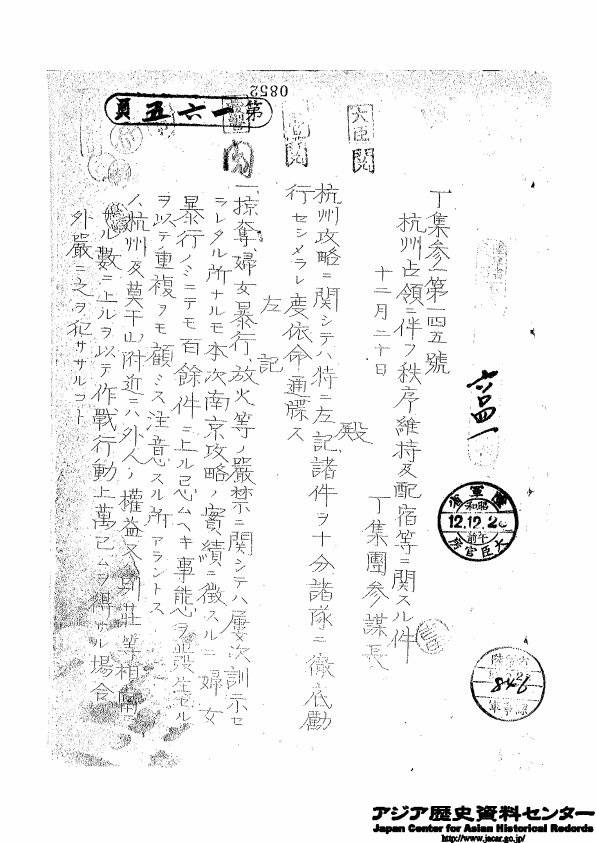 0852
第一六五頁
大臣 閲
丁集参一第一四五號
杭州占領ニ伴フ秩序維持及配宿等ニ関スル件
十二月二十日
丁集團参謀長
殿
杭州攻略ニ関シテハ特ニ左記諸件ヲ十分諸隊ニ徹底励
行セシメラレ度依命通牒ス
左記
一、掠奪婦女暴行、放火等ノ嚴禁ニ関シテハ屢次訓示セ
ラレタル所ナルモ本次南京攻略ノ實績ニ徴スルニ婦女
暴行ノミニテモ百餘件ニ上ル忌ムヘキ事態ヲ發生セル
ヲ以テ重複ヲモ顧ミス注意スル所アラントス
杭州及莫干山附近ニハ外人ノ權益又別荘等相當
ル數ニ上ルヲ以テ作戰行動上萬已ムヲ得サル場合
外嚴ニ之ヲ犯ササルコト
六〇四一
陸軍省
昭和
12.12.2
午前
大臣官房
846
アジア歴史資料センター
Japan Center for Asian Historical Records
http://www.jacar.go.jp/